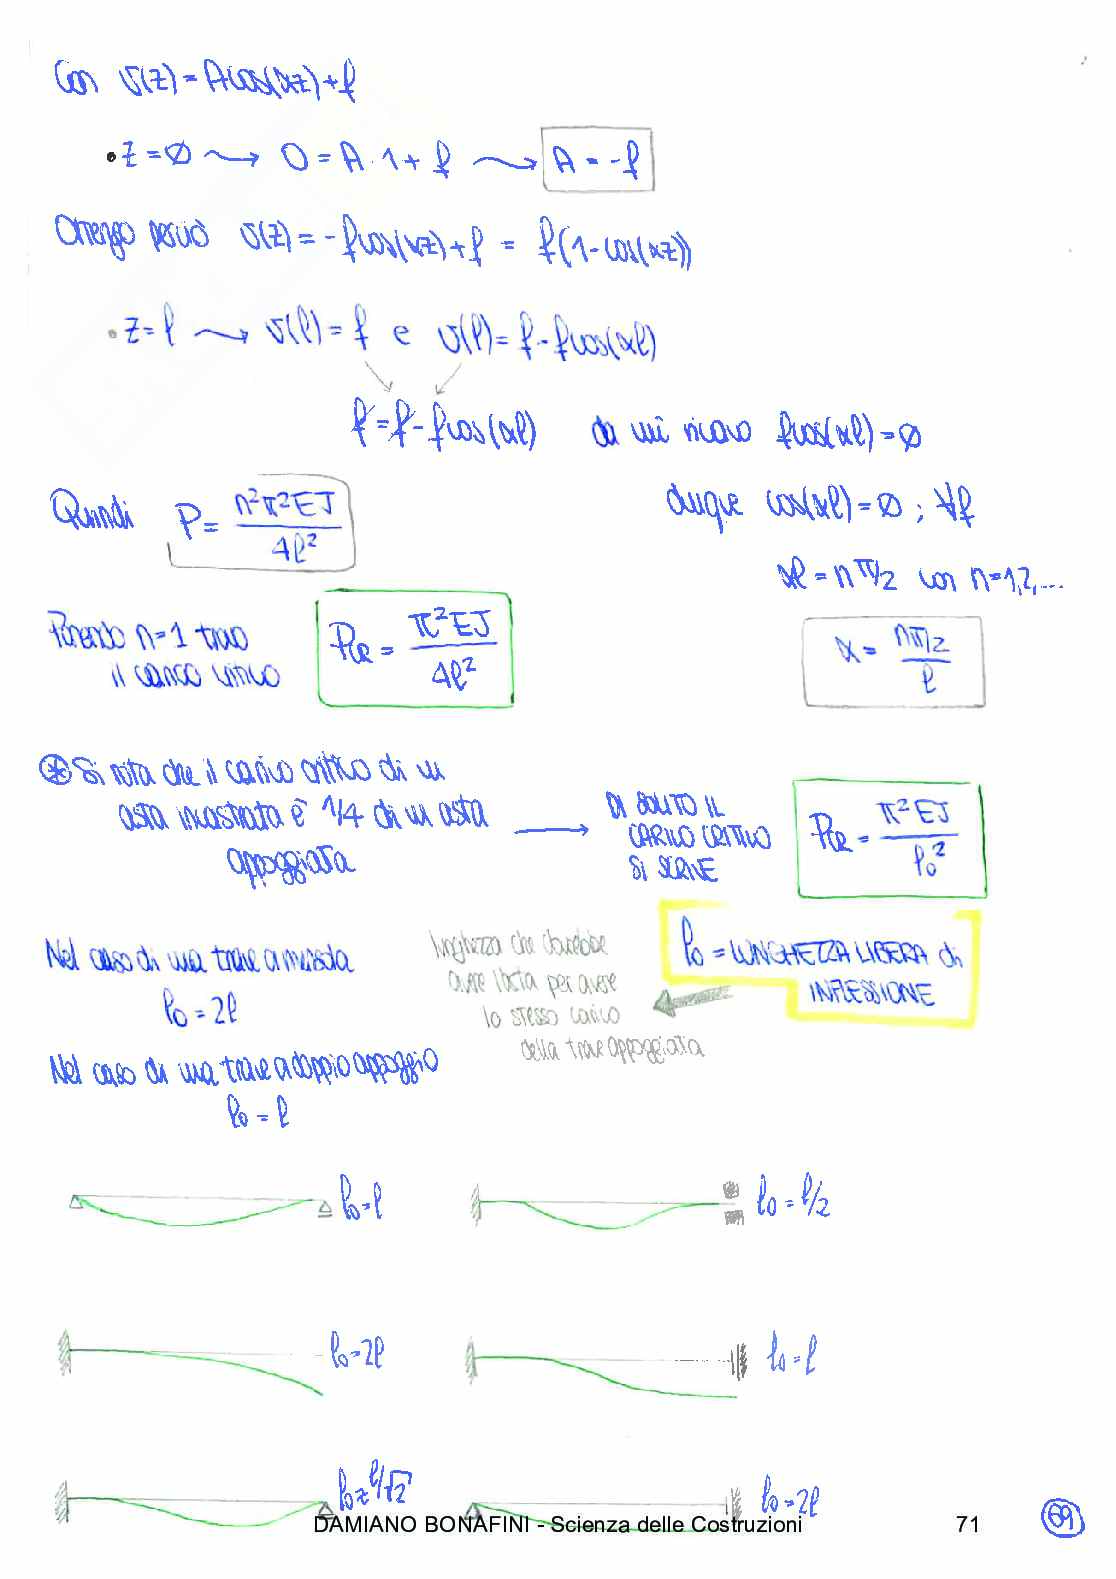 Con v(z) = A cos(αz) + f
• z = ∅ ⤳ 0 = A · 1 + f ⤳ A = -f
Ottengo perciò v(z) = -f cos(αz) + f = f(1 - cos(αz))
• z = l ⤳ v(l) = f e v(l) = f - f cos(αl)
f = f - f cos(αl) da cui ricavo f cos(αl) = ∅
dunque cos(αl) = ∅ ; ∀f
αl = n π/2 con n = 1,2,...
α = nπ/2 / l
Quindi P = n²π²EJ / 4l²
Ponendo n=1 trovo
il carico critico
Pcr = π²EJ / 4l²
⊛ Si nota che il carico critico di un
asta incastrata è 1/4 di un asta
appoggiata
DI SOLITO IL
CARICO CRITICO
SI SCRIVE
Pcr = π²EJ / l₀²
l₀ = LUNGHEZZA LIBERA di
INFLESSIONE
lunghezza che dovrebbe
avere l'asta per avere
lo stesso carico
della trave appoggiata
Nel caso di una trave a mensola
l₀ = 2l
Nel caso di una trave a doppio appoggio
l₀ = l
l₀ = l
l₀ = l/2
l₀ = 2l
l₀ = l
l₀ ≈ l/√2
l₀ = 2l
DAMIANO BONAFINI - Scienza delle Costruzioni 71
69